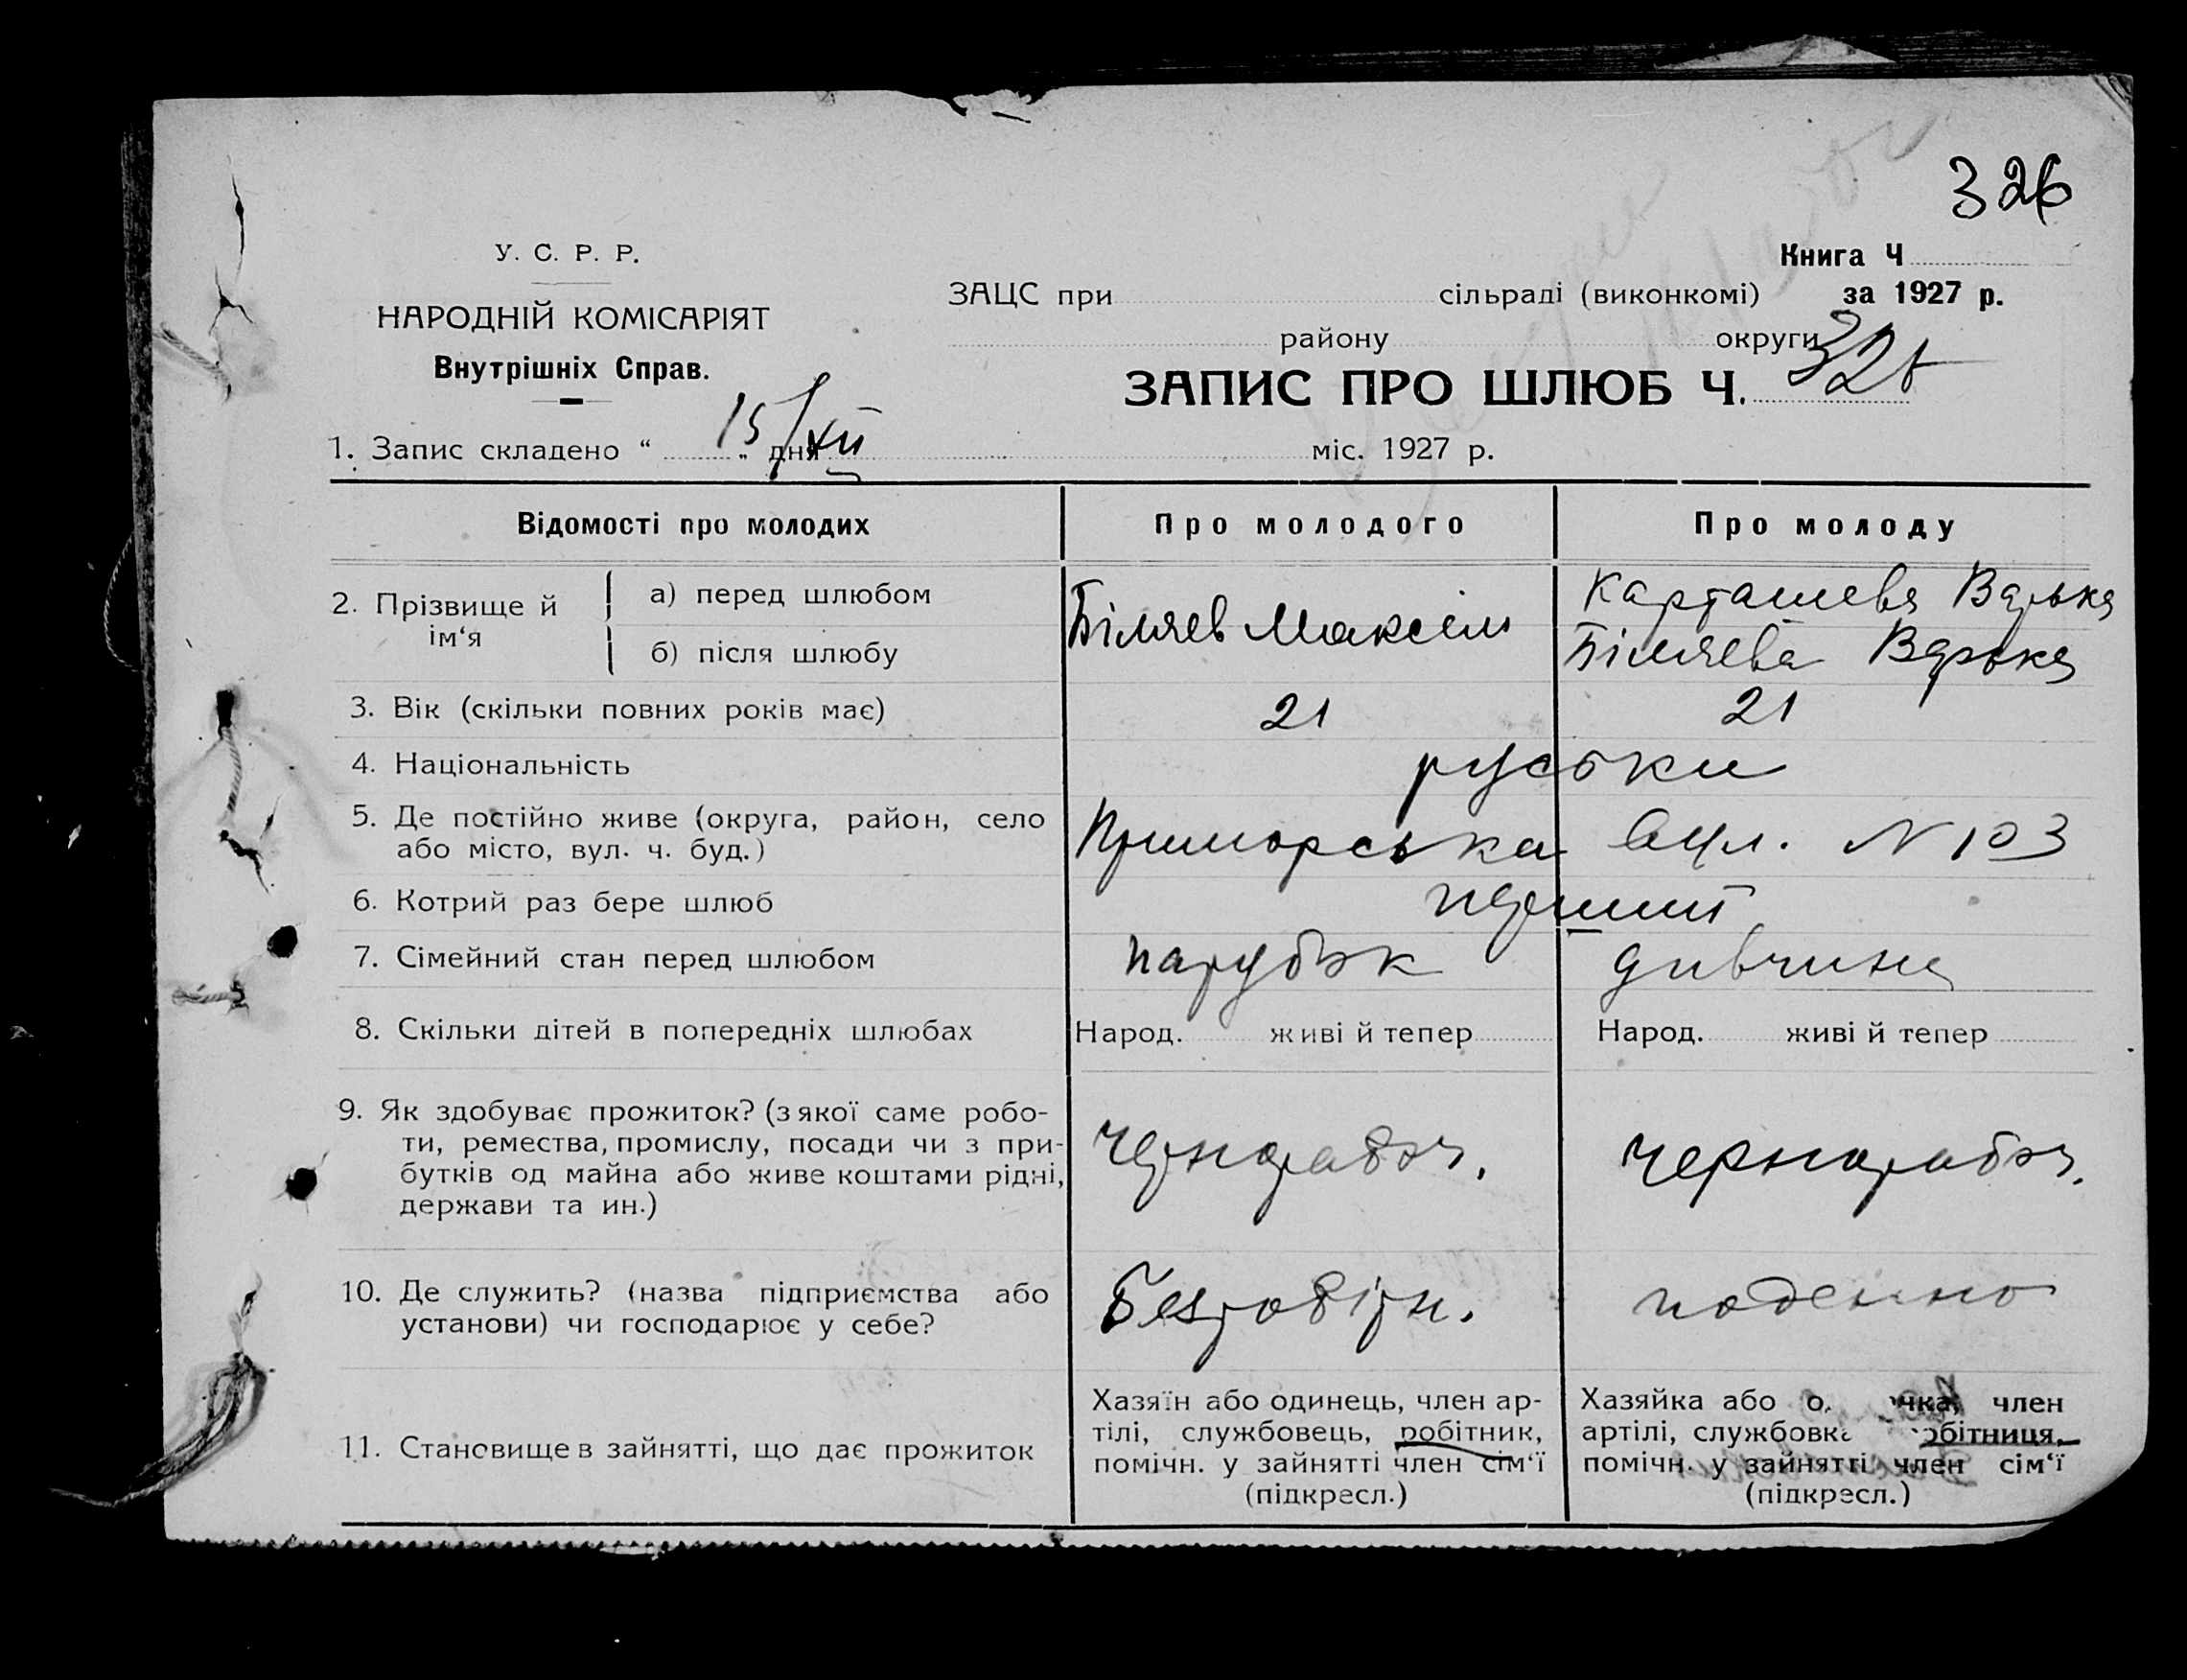 326
У. С. Р. Р.
НАРОДНІЙ КОМІСАРІЯТ
Внутрішніх Справ.
Книга Ч
ЗАЦС при сільраді (виконкомі) за 1927 р.
району округи
ЗАПИС ПРО ШЛЮБ Ч. 326
1. Запис складено “ 15/XII „ дня міс. 1927 р.
Відомості про молодих Про молодого Про молоду
2. Прізвище й ім‘я
а) перед шлюбом Біляев Максим Карташева Варька
б) після шлюбу Біляева Варька
3. Вік (скільки повних років має) 21 21
4. Національність руськи
5. Де постійно живе (округа, район, село
або місто, вул. ч. буд.) Приморська вул. N 103
6. Котрий раз бере шлюб перший
7. Сімейний стан перед шлюбом парубок дивчина
8. Скільки дітей в попередніх шлюбах Народ. живі й тепер Народ. живі й тепер
9. Як здобуває прожиток? (з якої саме робо-
ти, ремества, промислу, посади чи з при-
бутків од майна або живе коштами рідні,
держави та ин.)
чернораboч. чернорабоч.
10. Де служить? (назва підприємства або
установи) чи господарює у себе?
Безробітн. поденно
11. Становище в зайнятті, що дає прожиток
Хазяїн або одинець, член ар-
тілі, службовець, робітник,
помічн. у зайнятті член сім‘ї
(підкресл.)
Хазяйка або о. чка, член
артілі, службовка робітниця,
помічн. у зайнятті член сім‘ї
(підкресл.)